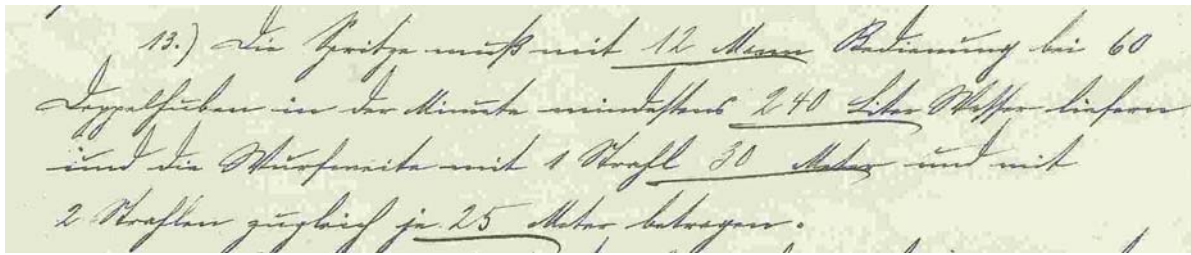 13.) Die Spritze muß mit 12 Mann Bedienung bei 60
Doppelhuben in der Minute mindestens 240 Liter Wasser liefern
und die Wurfweite mit 1 Strahl 30 Meter und mit
2 Strahlen zugleich je 25 Meter betragen.